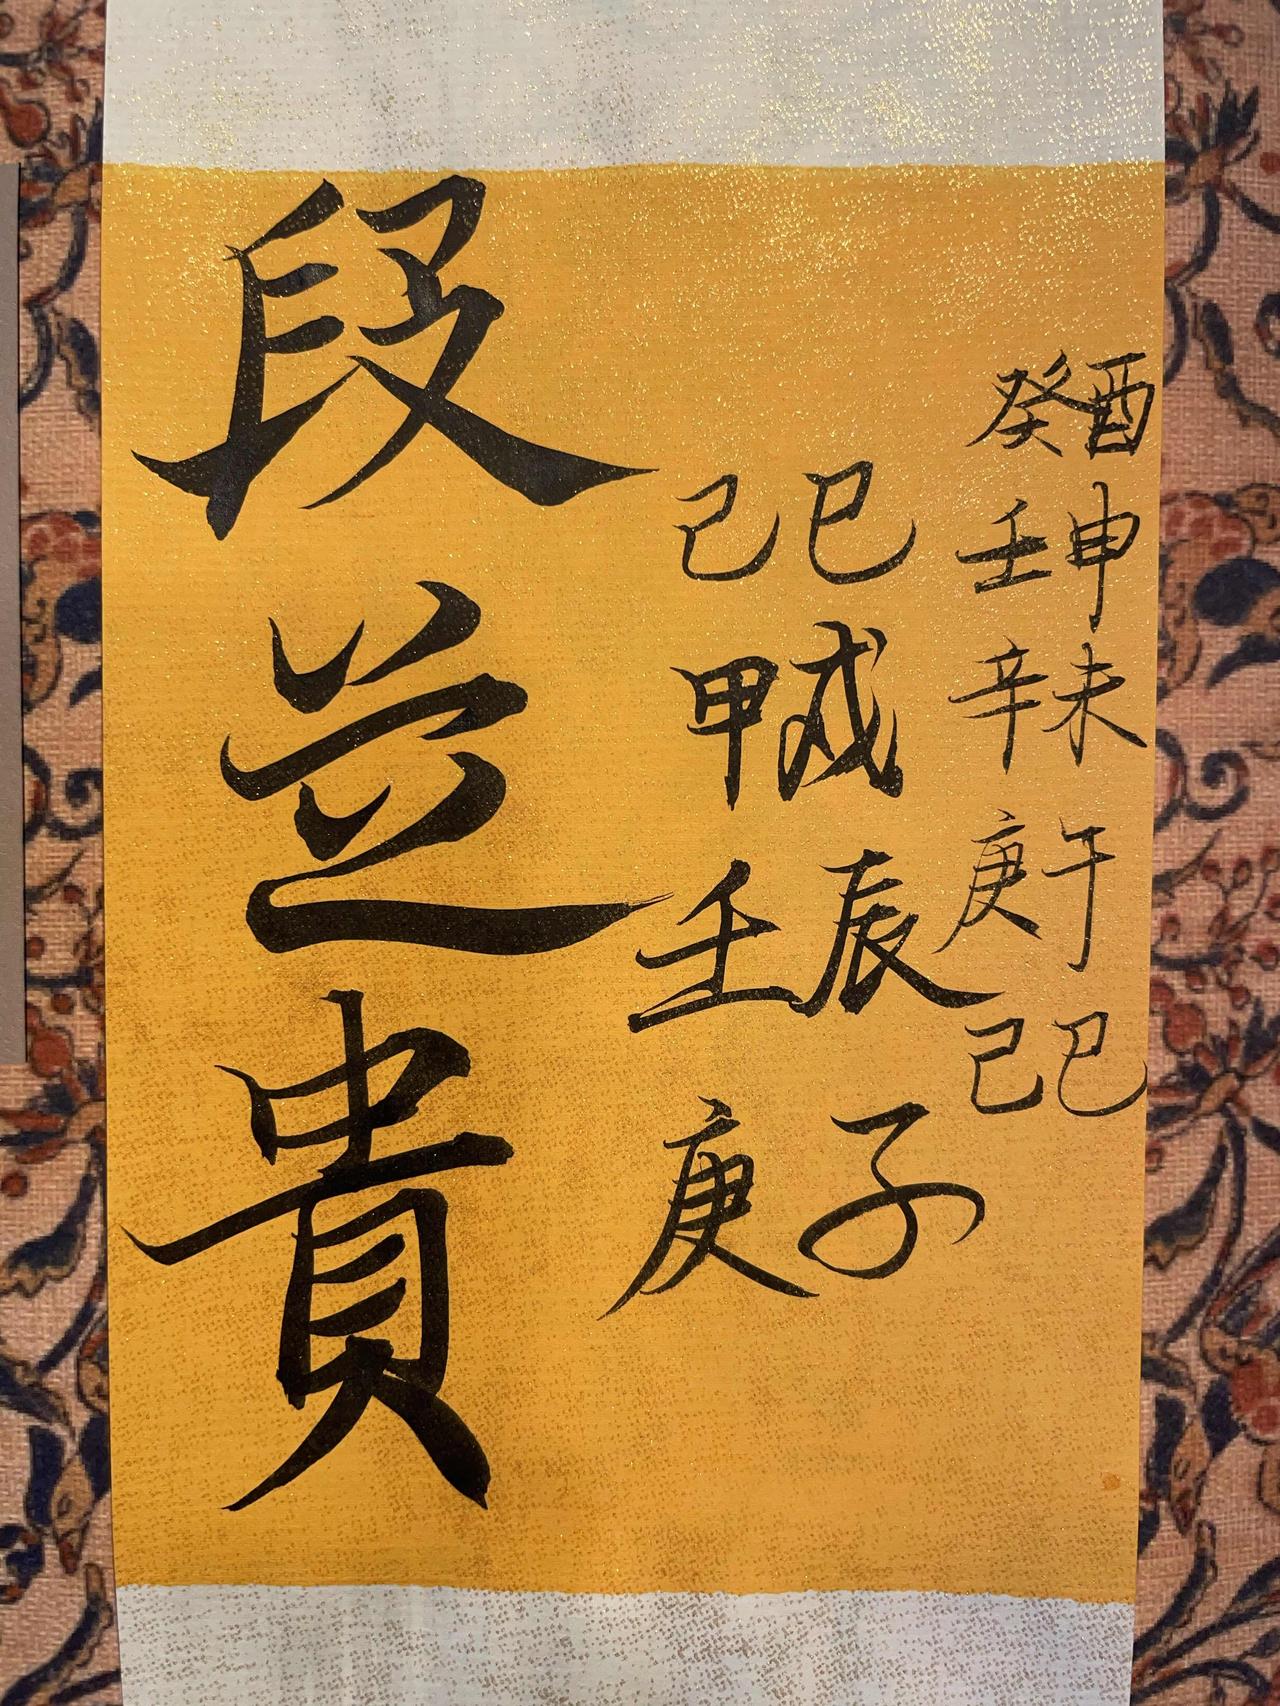 癸酉
壬申
辛未
庚午
己巳
己巳
甲戌
壬辰
庚子
段芝貴